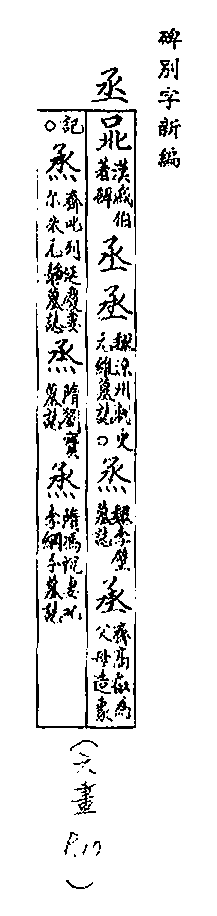 碑別字新編
丞
漢戚伯著碑 丞 丞 魏涼州刺史元維墓誌○烝 魏李璧墓誌 丞 齊高叡為父母造象
記○烝 齊叱列延慶妻尔朱元静墓誌 烝 隋劉寶墓誌 烝 隋馮忱妻叱李綱子墓誌
(六畫 P.17)